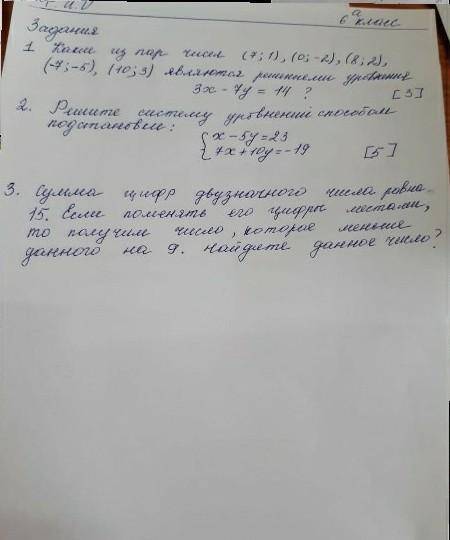 6 а класс
Задания
1. Какие из пар чисел (7; 1), (0; -2), (8; 2),
(-7; -5), (10; 3) являются решениями уравнения
3x - 7y = 14 ? [3]
2. Решите систему уравнений способом
подстановки:
{ x - 5y = 23
{ 7x + 10y = -19 [5]
3. Сумма цифр двузначного числа равна
15. Если поменять его цифры местами,
то получим число, которое меньше
данного на 9. Найдите данное число?